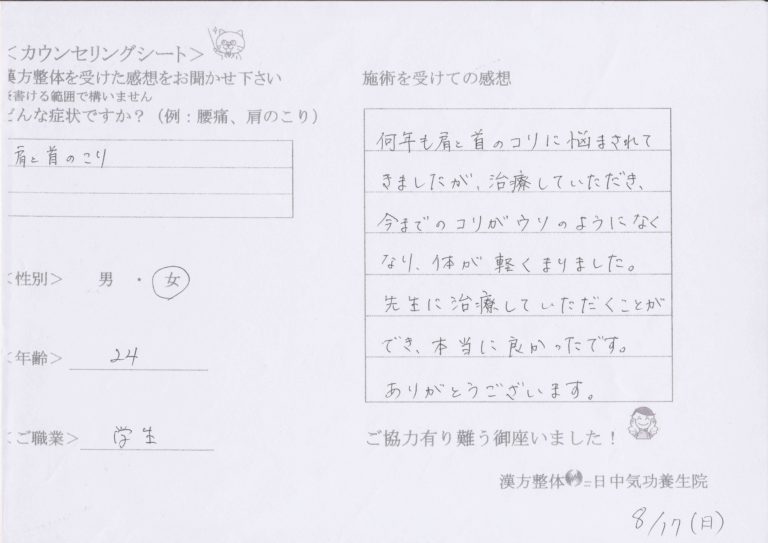 ＜カウンセリングシート＞
漢方整体を受けた感想をお聞かせ下さい
書ける範囲で構いません
どんな症状ですか？（例：腰痛、肩のこり）
肩と首のこり
＜性別＞ 男 ・ 女
＜年齢＞ 24
＜ご職業＞ 学生
施術を受けての感想
何年も肩と首のコリに悩まされて
きましたが、治療していただき、
今までのコリがウソのようになく
なり、体が軽くまりました。
先生に治療していただくことが
でき、本当に良かったです。
ありがとうございます。
ご協力有り難う御座いました！
漢方整体 日中気功養生院
8/17(日)